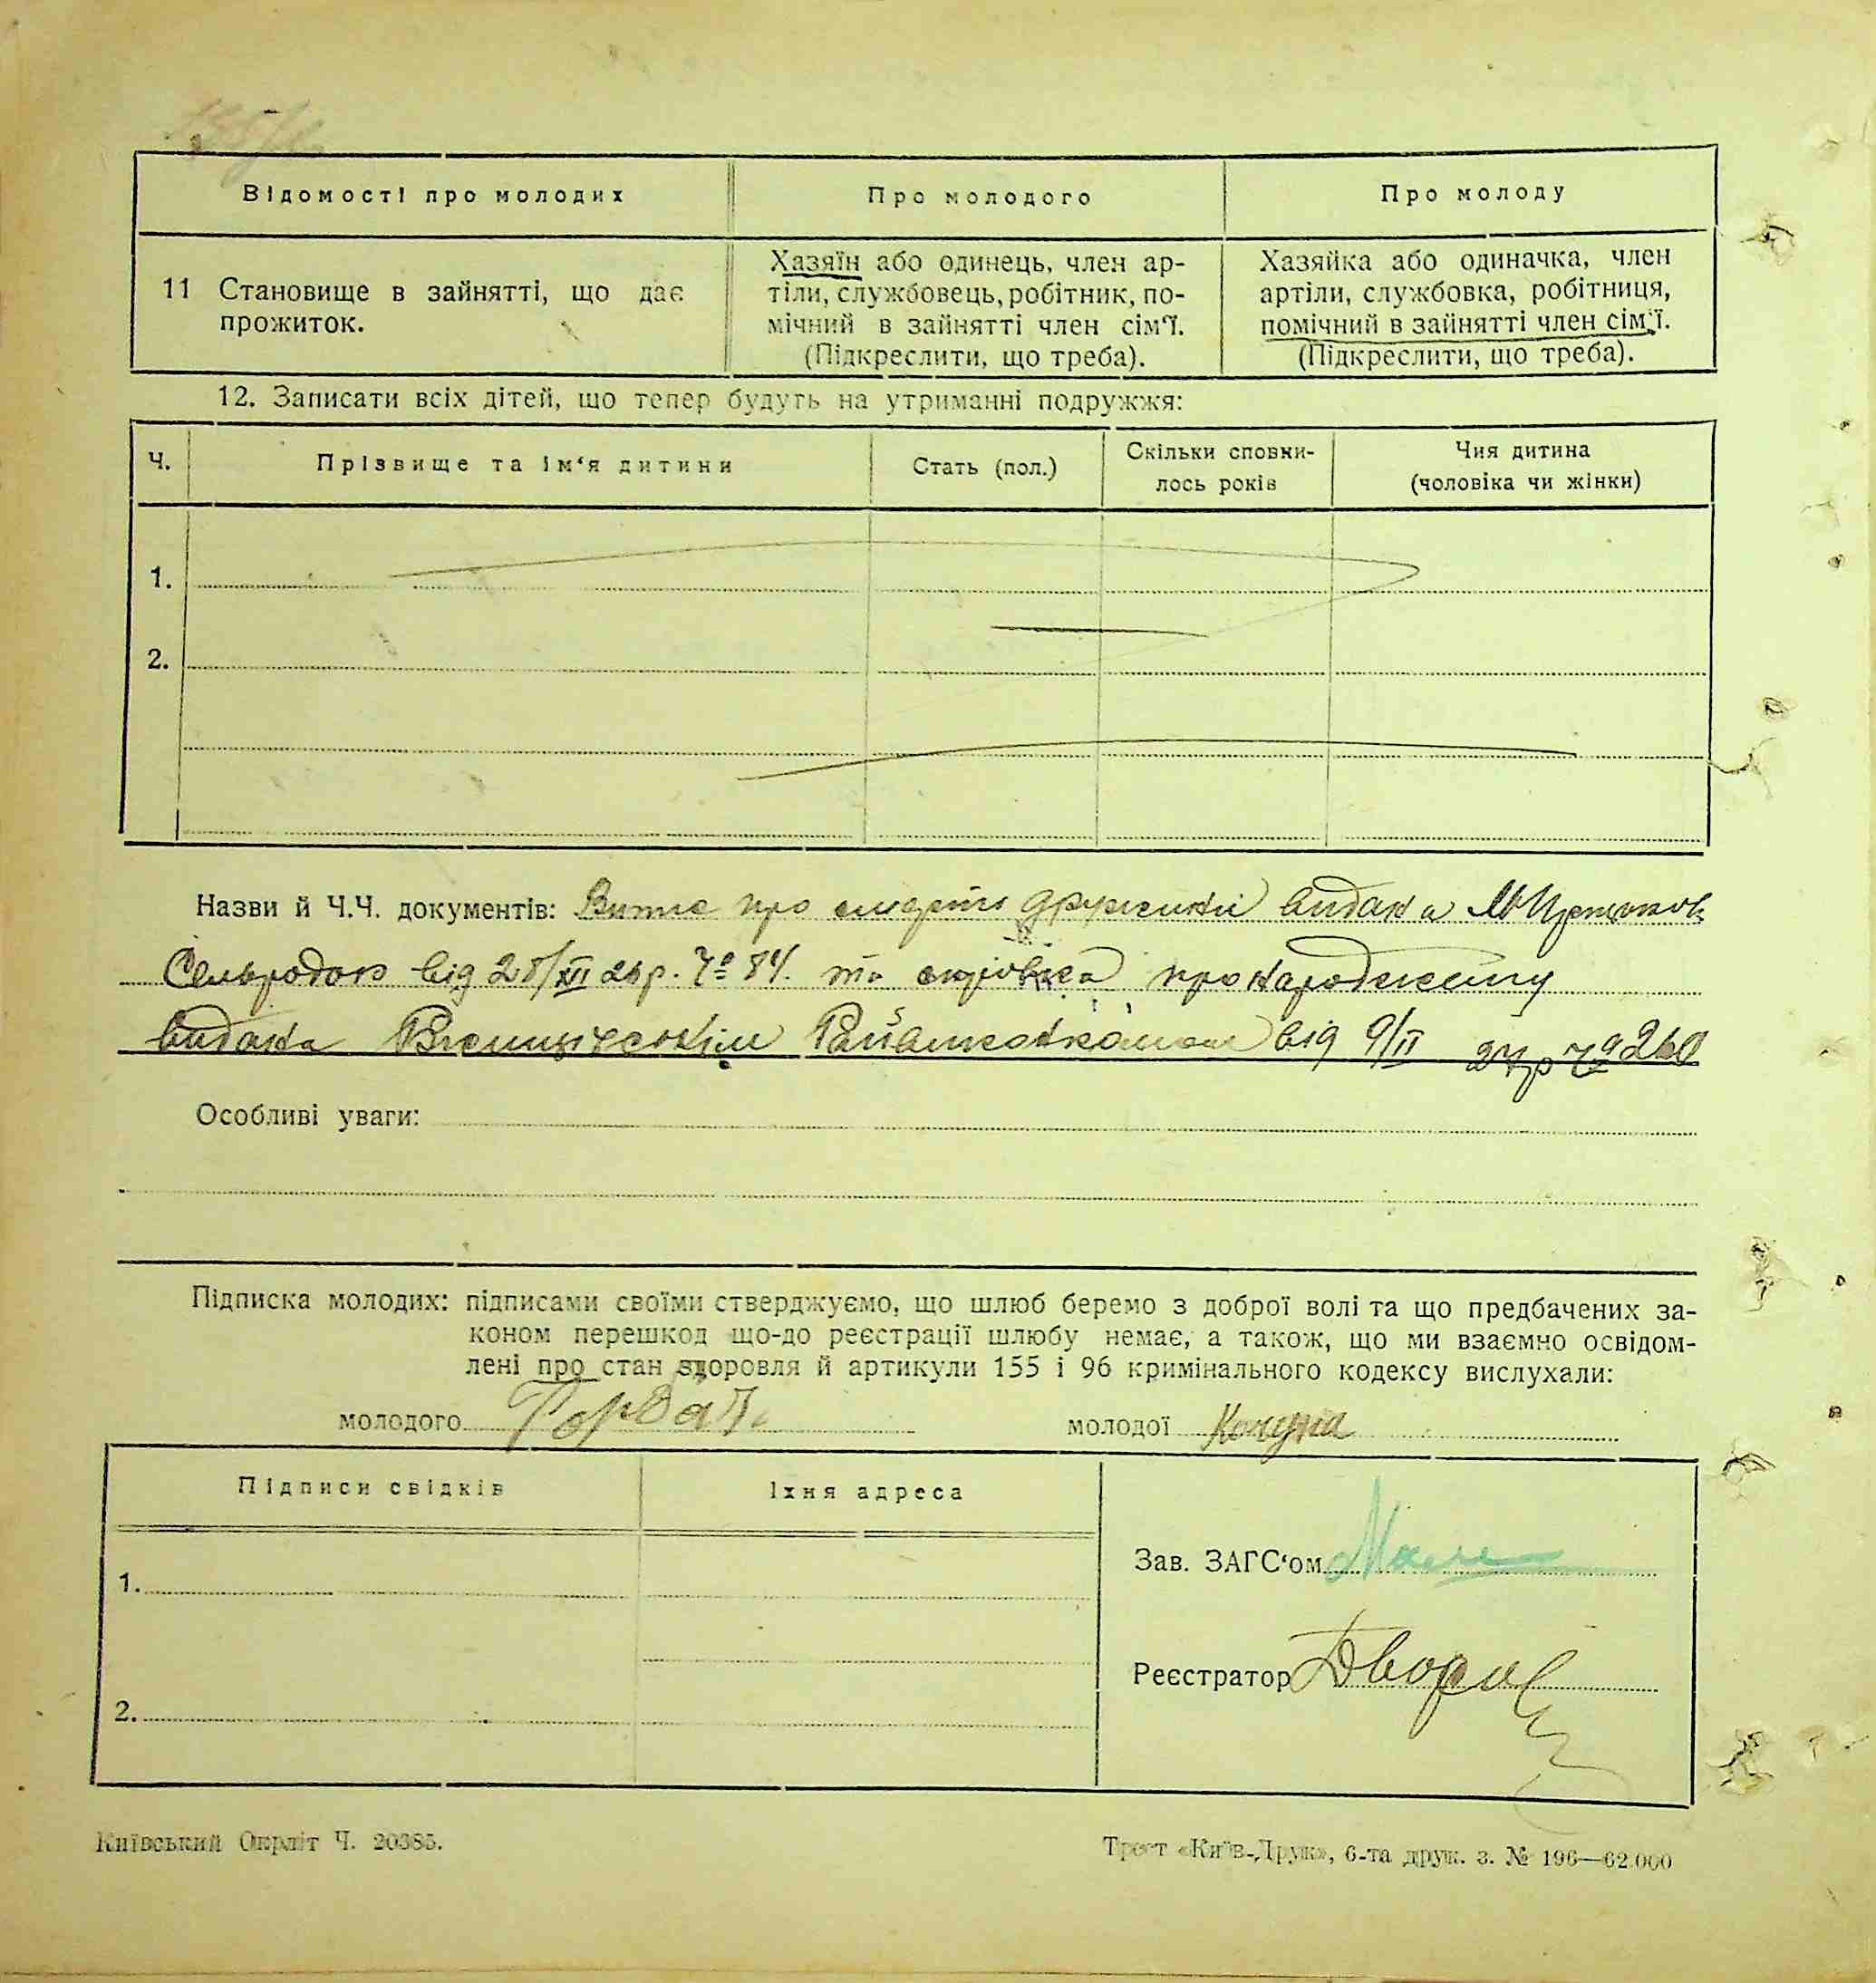 Відомості про молодих
Про молодого
Про молоду
11 Становище в зайнятті, що дає
прожиток.
Хазяїн або одинець, член ар-
тіли, службовець, робітник, по-
мічний в зайнятті член сім'ї.
(Підкреслити, що треба).
Хазяйка або одиначка, член
артіли, службовка, робітниця,
помічний в зайнятті член сім'ї.
(Підкреслити, що треба).
12. Записати всіх дітей, що тепер будуть на утриманні подружжя:
Ч.
Прізвище та ім'я дитини
Стать (пол.)
Скільки сповни-
лось років
Чия дитина
(чоловіка чи жінки)
1.
2.
Назви й Ч.Ч. документів: про смерть дружини видана
Сельрадою від 28/XII 26 р. № 84. та про народження
видана від 9/II 27 р № 260
Особливі уваги:
Підписка молодих: підписами своїми стверджуємо, що шлюб беремо з доброї волі та що предбачених за-
коном перешкод що-до реєстрації шлюбу немає, а також, що ми взаємно освідом-
лені про стан здоровля й артикули 155 і 96 кримінального кодексу вислухали:
молодого
молодої
Підписи свідків
Їхня адреса
1.
2.
Зав. ЗАГС'ом
Реєстратор
Київський Окрліт Ч. 20385.
Трест «Київ-Друк», 6-та друк. з. № 196—62.000